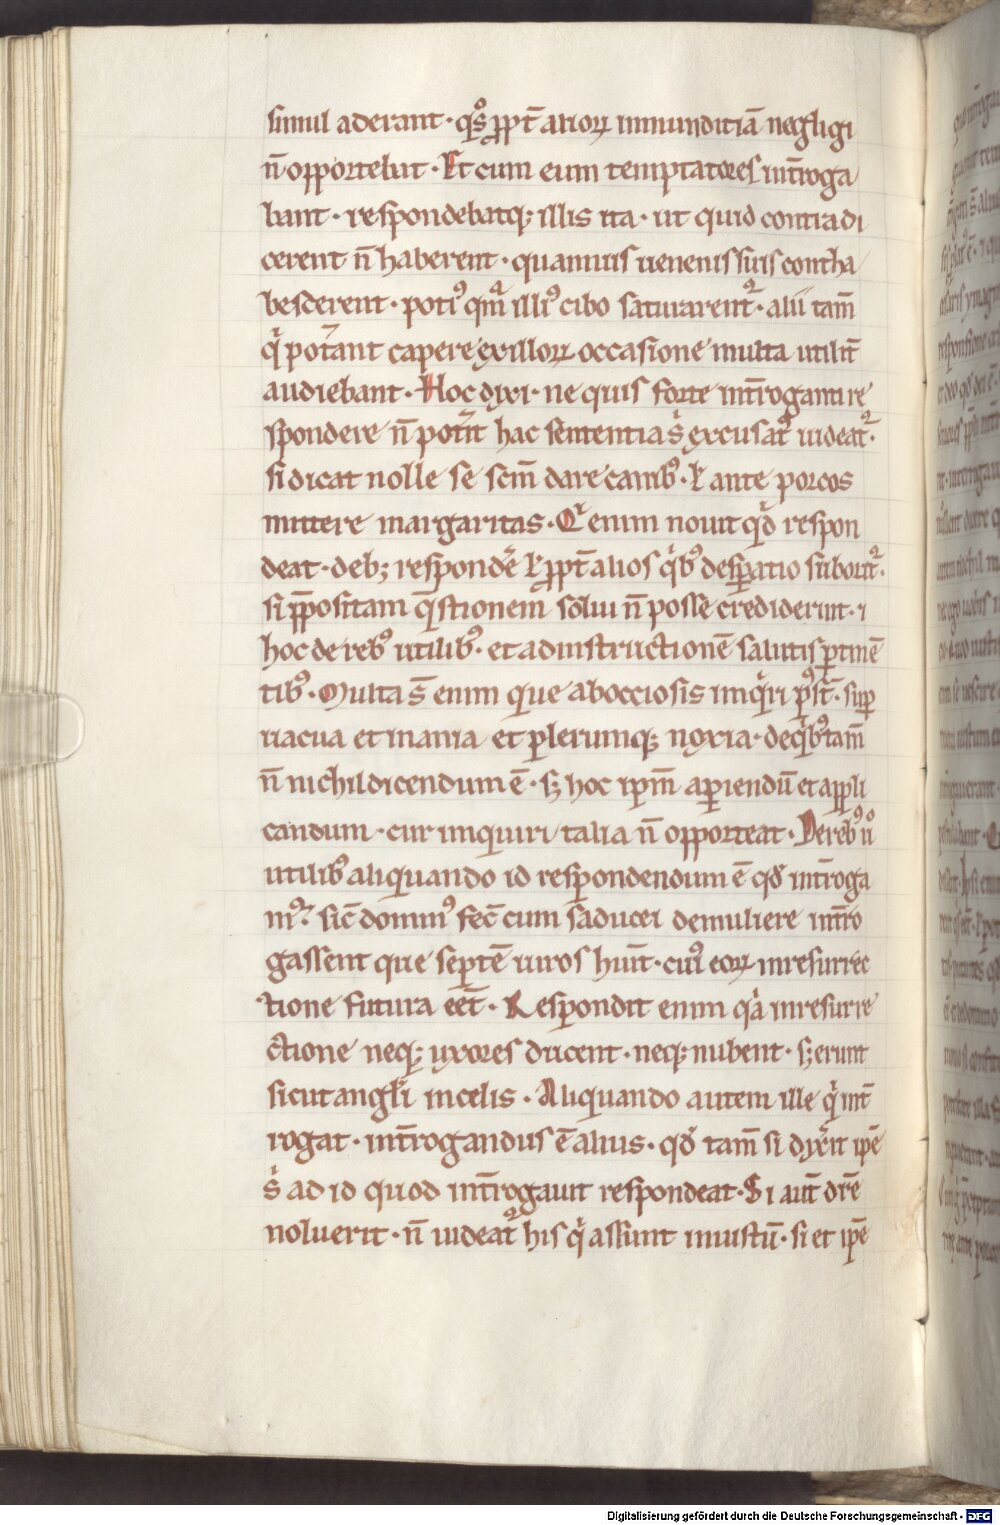 simul aderant · qͦs ꝓpt̄ alioꝝ inmunditiā negligi
n̄ opportebat · Et cum eum temptatores int̄roga
bant · respondebatqꝫ illis ita · ut quid contradi
cerent n̄ haberent · quamuis uenenis suis contha
bescerent · potiꝰ qm̄ illiꝰ cibo saturarent᷑ · alii tam̄
qͥ pot̾ant capere exilloꝝ occasione multa utilit̄
audiebant · Hoc dixi · ne quis forte int̄roganti re
spondere n̄ pot̾it hac sententia sͥ excusat᷑ uideat᷑ ·
si dicat nolle se scm̄ dare canibꝰ · ł ante porcos
mittere margaritas · Qͥ enim nouit qͥd respon
deat · debꝫ respondẽ ł ꝓpt̄ alios qͥbꝰ desꝑatio suborit᷑ ·
si ꝓpositam q̄stionem solui n̄ posse crediderint · ⁊
hoc de rebꝰ utilibꝰ · et adinstructionē salutis ꝑtinē
tibꝰ · Multa s̄ enim que abocciosis inqͥri pꝰst̄ · suꝑ
uacua et inania et ꝑlerumqꝫ noxia · deqͥbꝰ tam̄
n̄ nichil dicendum ē · sꝫ hoc ipm̄ aꝑiendū et appli
candum · cur inquiri talia n̄ opporteat · De rebꝰ uͦ
utilibꝰ aliquando id respondendum ē qd̄ int̄roga
m᷑ · sic̄ dominꝰ fec̄ cum saducei demuliere int̄ro
gassent que septē uiros huit̄ · cuiꝰ eoꝝ inresurrec
tione futura eēt · Respondit enim qͥa inresurre
ctione neqꝫ uxores ducent · neqꝫ nubent · sꝫ erunt
sicut angł́i incelis · Aliquando autem ille qͥ int̄
rogat · int̄rogandus ē alius · qd̄ tam̄ si dix̾it ip̄e
sͥ ad id quod int̄rogauit respondeat · Si aut̄ dr̄e
noluerit · n̄ uideat᷑ his qͥ assunt iniustū · si et ip̄e
Digitalisierung gefördert durch die Deutsche Forschungsgemeinschaft - DFG